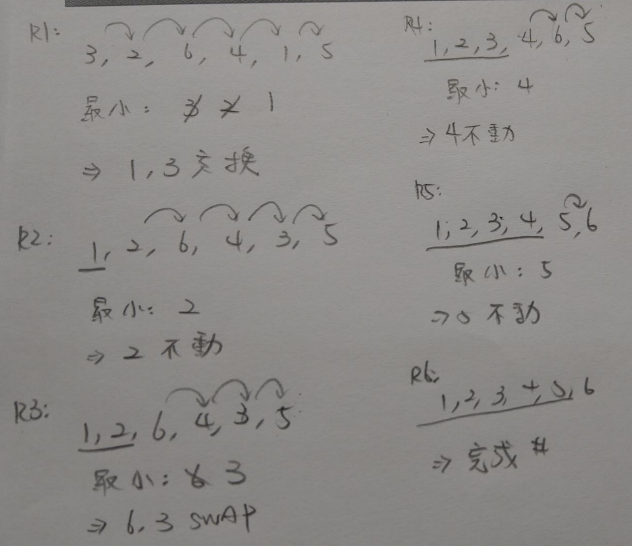 R1:
3, 2, 6, 4, 1, 5
最小: 3 2 1
⇒ 1, 3 交換
R2: 1, 2, 6, 4, 3, 5
最小: 2
⇒ 2 不動
R3: 1, 2, 6, 4, 3, 5
最小: 6 3
⇒ 6, 3 SWAP
R4:
1, 2, 3, 4, 6, 5
最小: 4
⇒ 4不動
R5:
1, 2, 3, 4, 5, 6
最小: 5
⇒ 5 不動
R6:
1, 2, 3, 4, 5, 6
⇒ 完成 #